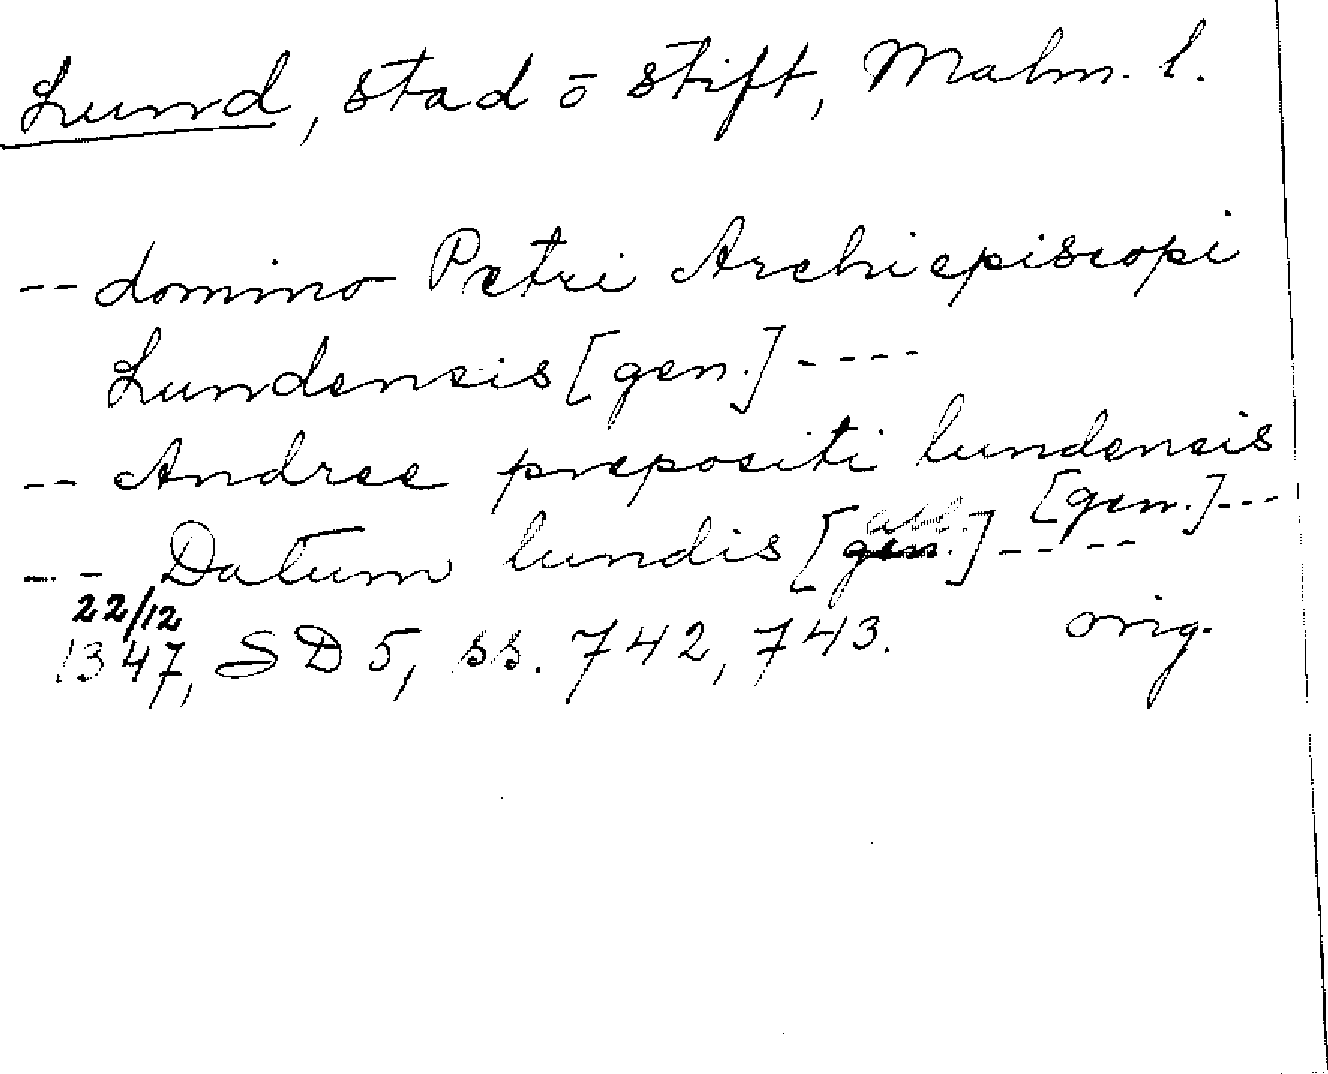 Lund, stad ō stift, Malm. l.
-- domino Petri Archiepiscopi
Lundensis [gen.] ----
-- Andree prepositi lundensis
[gen.] ---
-- Datum lundis [abl.] ----
22/12
1347, SD 5, ss. 742, 743. orig.